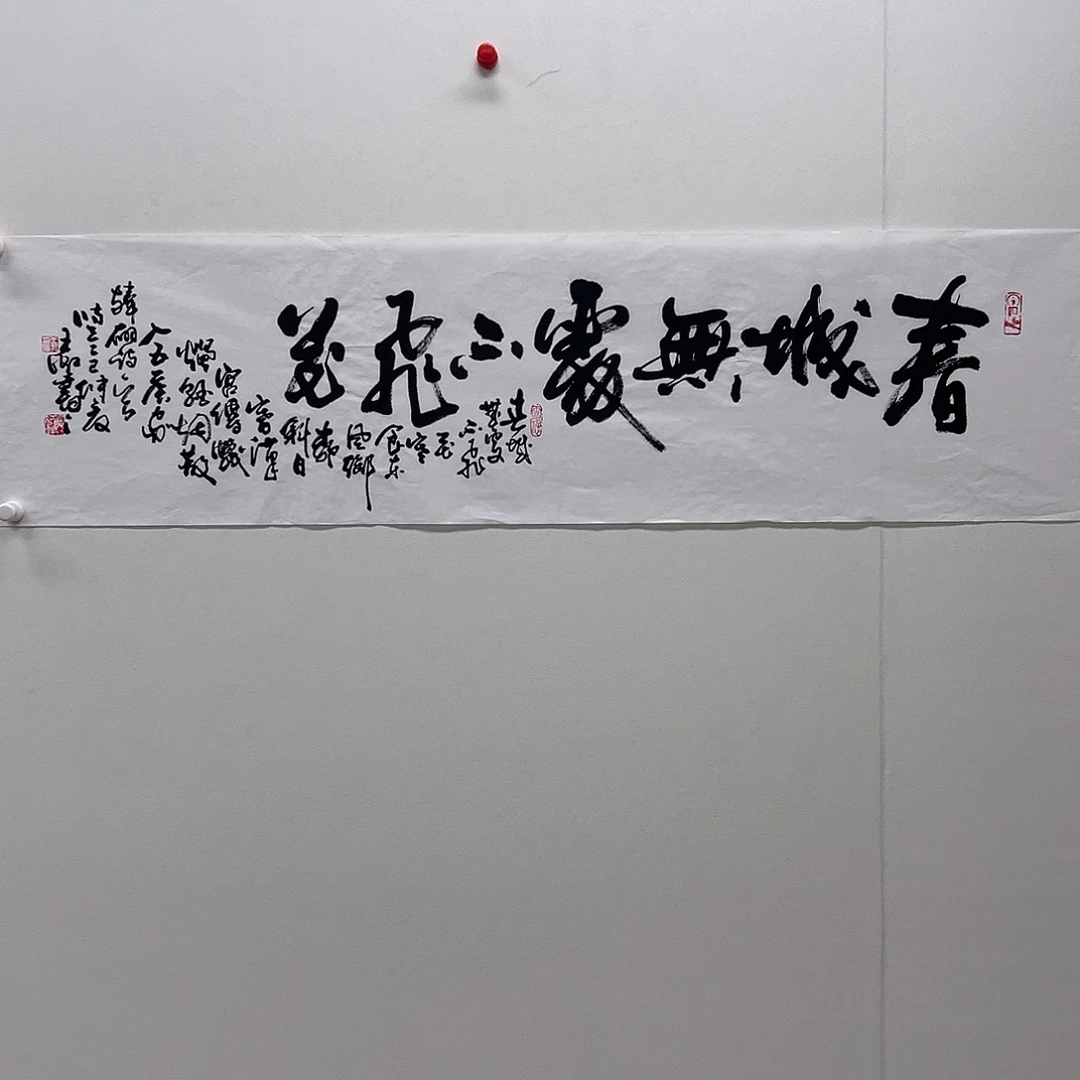 春城無處不飛花
春城
無處
不飛
花
寒
食東
風御
柳
斜日
暮漢
宮傳蠟
燭輕烟散
入五侯家
韓翃詩